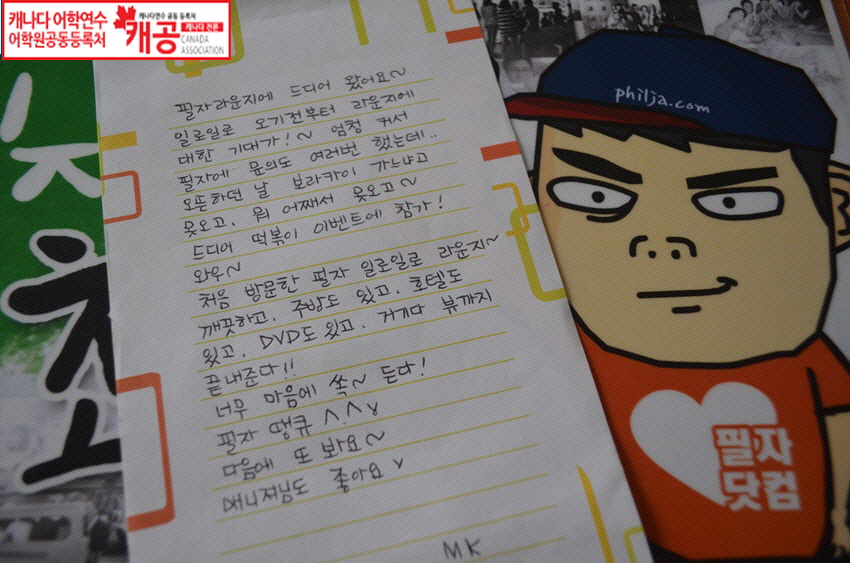 캐나다 어학연수
어학원공동등록처
캐나다연수 공동 등록처
캐공
캐나다 전문
CANADA
ASSOCIATION
필자라운지에 드디어 왔어요~
일로일로 오기전부터 라운지에
대한 기대가!~ 엄청 커서
필자에 문의도 여러번 했는데..
오픈하던 날 보라카이 가느냐고
못오고, 뭐 어째서 못오고~
드디어 떡볶이 이벤트에 참가!
와우~
처음 방문한 필자 일로일로 라운지~
깨끗하고, 주방도 있고, 호텔도
있고, DVD도 있고, 거기다 뷰까지
끝내준다!!
너무 마음에 쏙~ 든다!
필자 땡큐 ^.^v
다음에 또 봐요~
매니저님도 좋아요 v
MK
philja.com
필자
닷컴